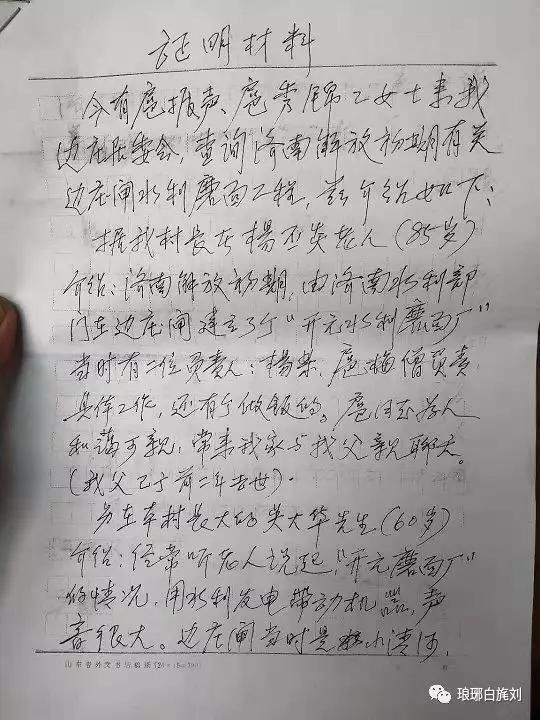 证明材料
今有扈振声、扈秀锦乙女士来我
边庄居委会,查询济南解放初期有关
边庄闸水利磨面工程,其介绍如下:
据我村长在杨玉炎老人(85岁)
介绍:济南解放初期,由济南水利部
门在边庄闸建立了个“开元水利磨面厂”
当时有二位负责人:杨荣、扈梅僧负责
具体工作,还有个做饭的。扈同志为人
和蔼可亲,常来我家与我父亲聊天。
(我父已于前二年去世)。
另在本村长大的吴大华先生(60岁)
介绍:经常听老人说起,“开元磨面厂”
的情况,用水利发电带动机器,声
音很大。边庄闸当时是小清河,
山东省外文书店稿纸(20×15=300)
琅琊白旄刘